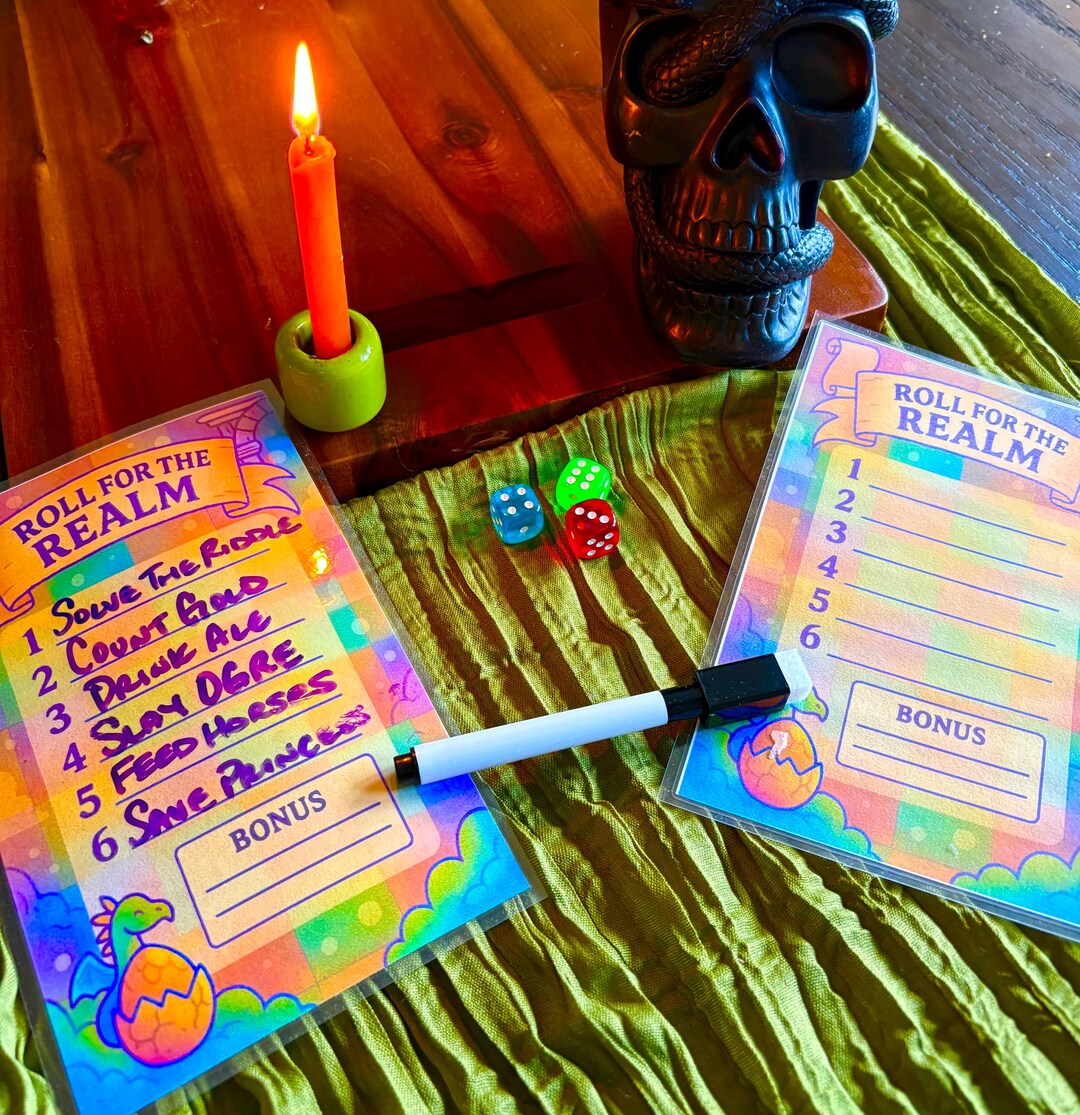 ROLL FOR THE
REALM
1 SOLVE THE RIDDLE
2 COUNT GOLD
3 DRINK ALE
4 SLAY OGRE
5 FEED HORSES
6 SAVE PRINCESS
BONUS
ROLL FOR THE
REALM
1
2
3
4
5
6
BONUS